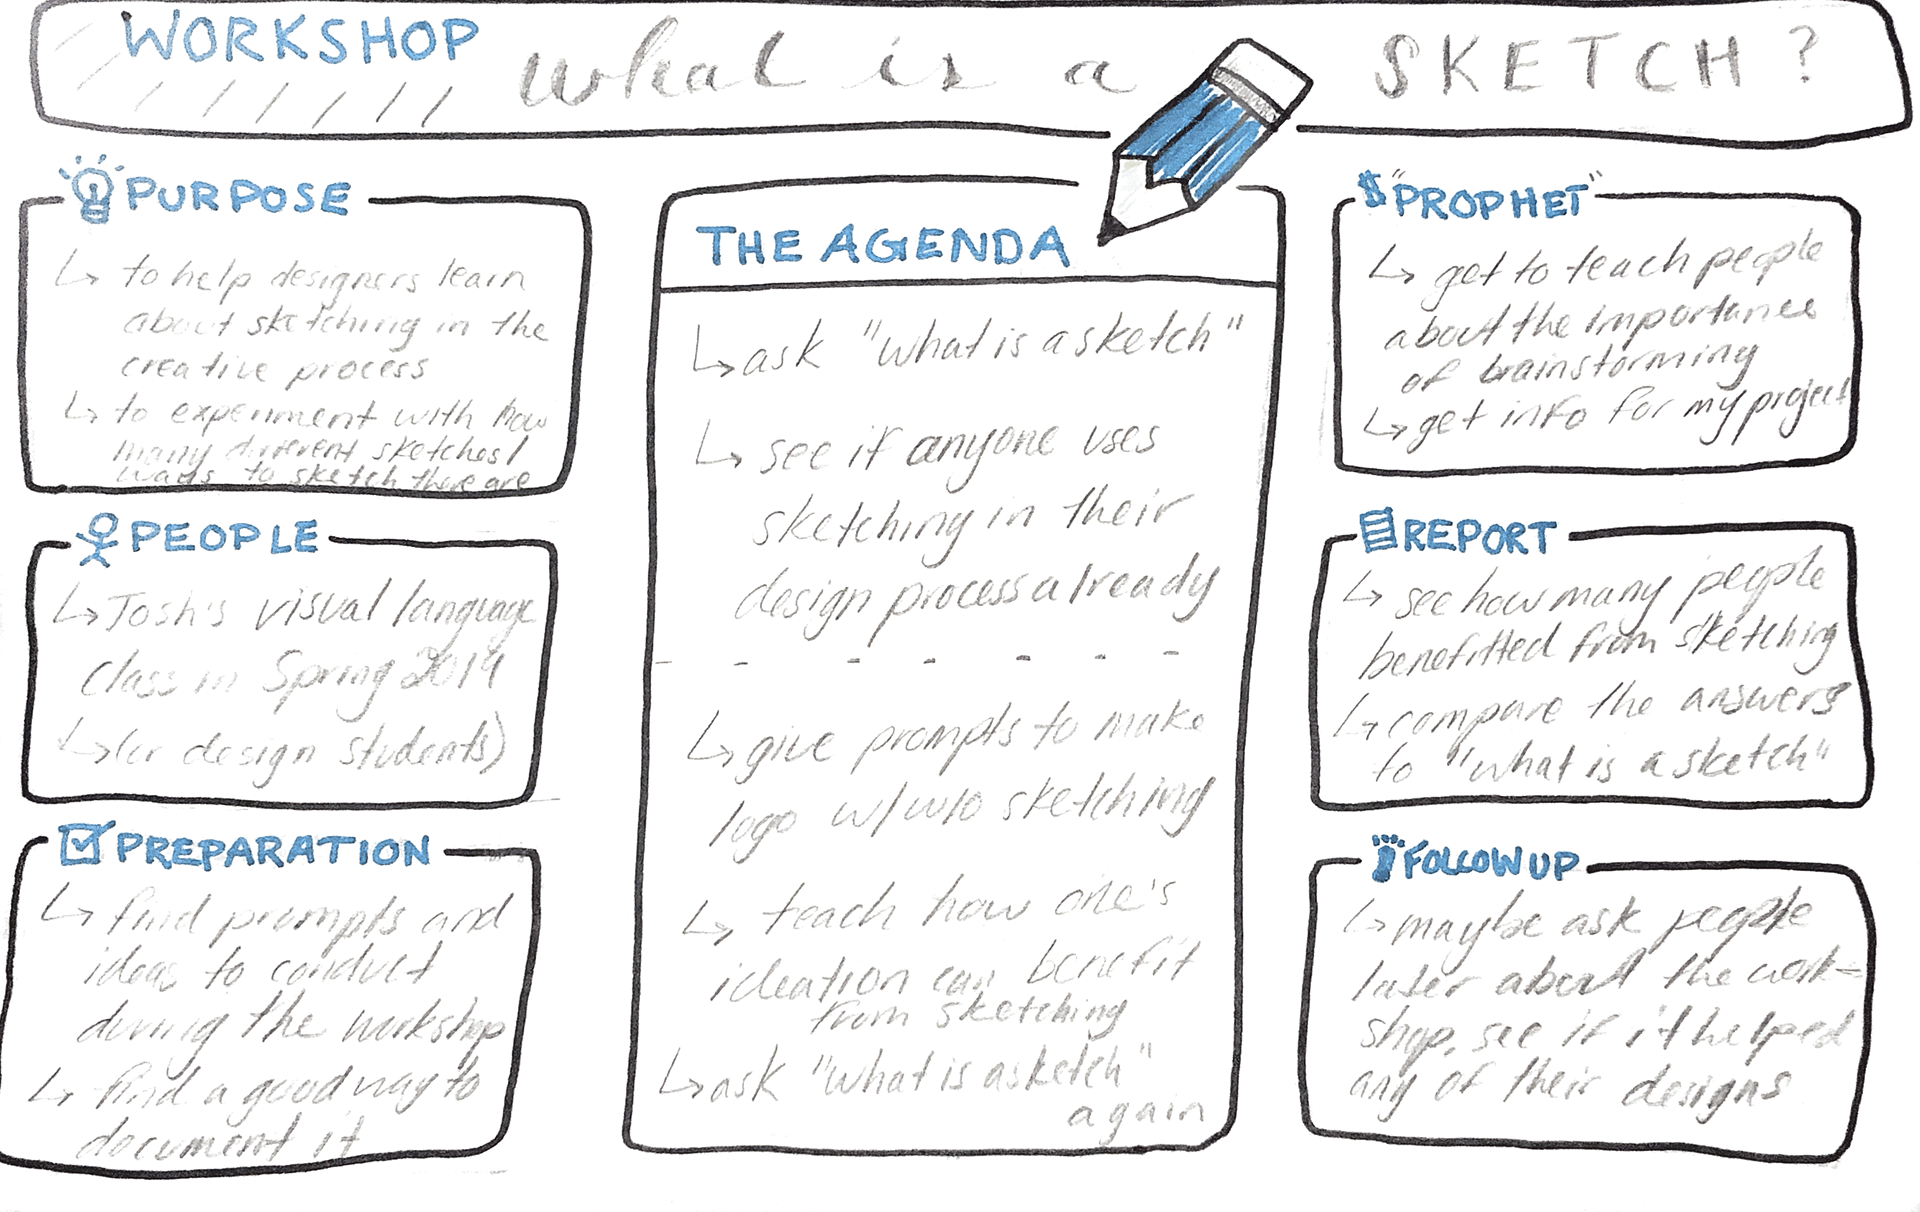 WORKSHOP what is a SKETCH?
PURPOSE
↳ to help designers learn
about sketching in the
creative process
↳ to experiment with how
many different sketches/
ways to sketch there are
PEOPLE
↳ Josh's visual language
class in Spring 2019
↳ (or design students)
PREPARATION
↳ find prompts and
ideas to conduct
during the workshop
↳ find a good way to
document it
THE AGENDA
↳ ask "what is a sketch"
↳ see if anyone uses
sketching in their
design process already
↳ give prompts to make
logo w/ w/o sketching
↳ teach how one's
ideation can benefit
from sketching
↳ ask "what is a sketch"
again
$ "PROPHET"
↳ get to teach people
about the importance
of brainstorming
↳ get info for my project
REPORT
↳ see how many people
benefitted from sketching
↳ compare the answers
to "what is a sketch"
FOLLOW UP
↳ maybe ask people
later about the work-
shop, see if it helped
any of their designs